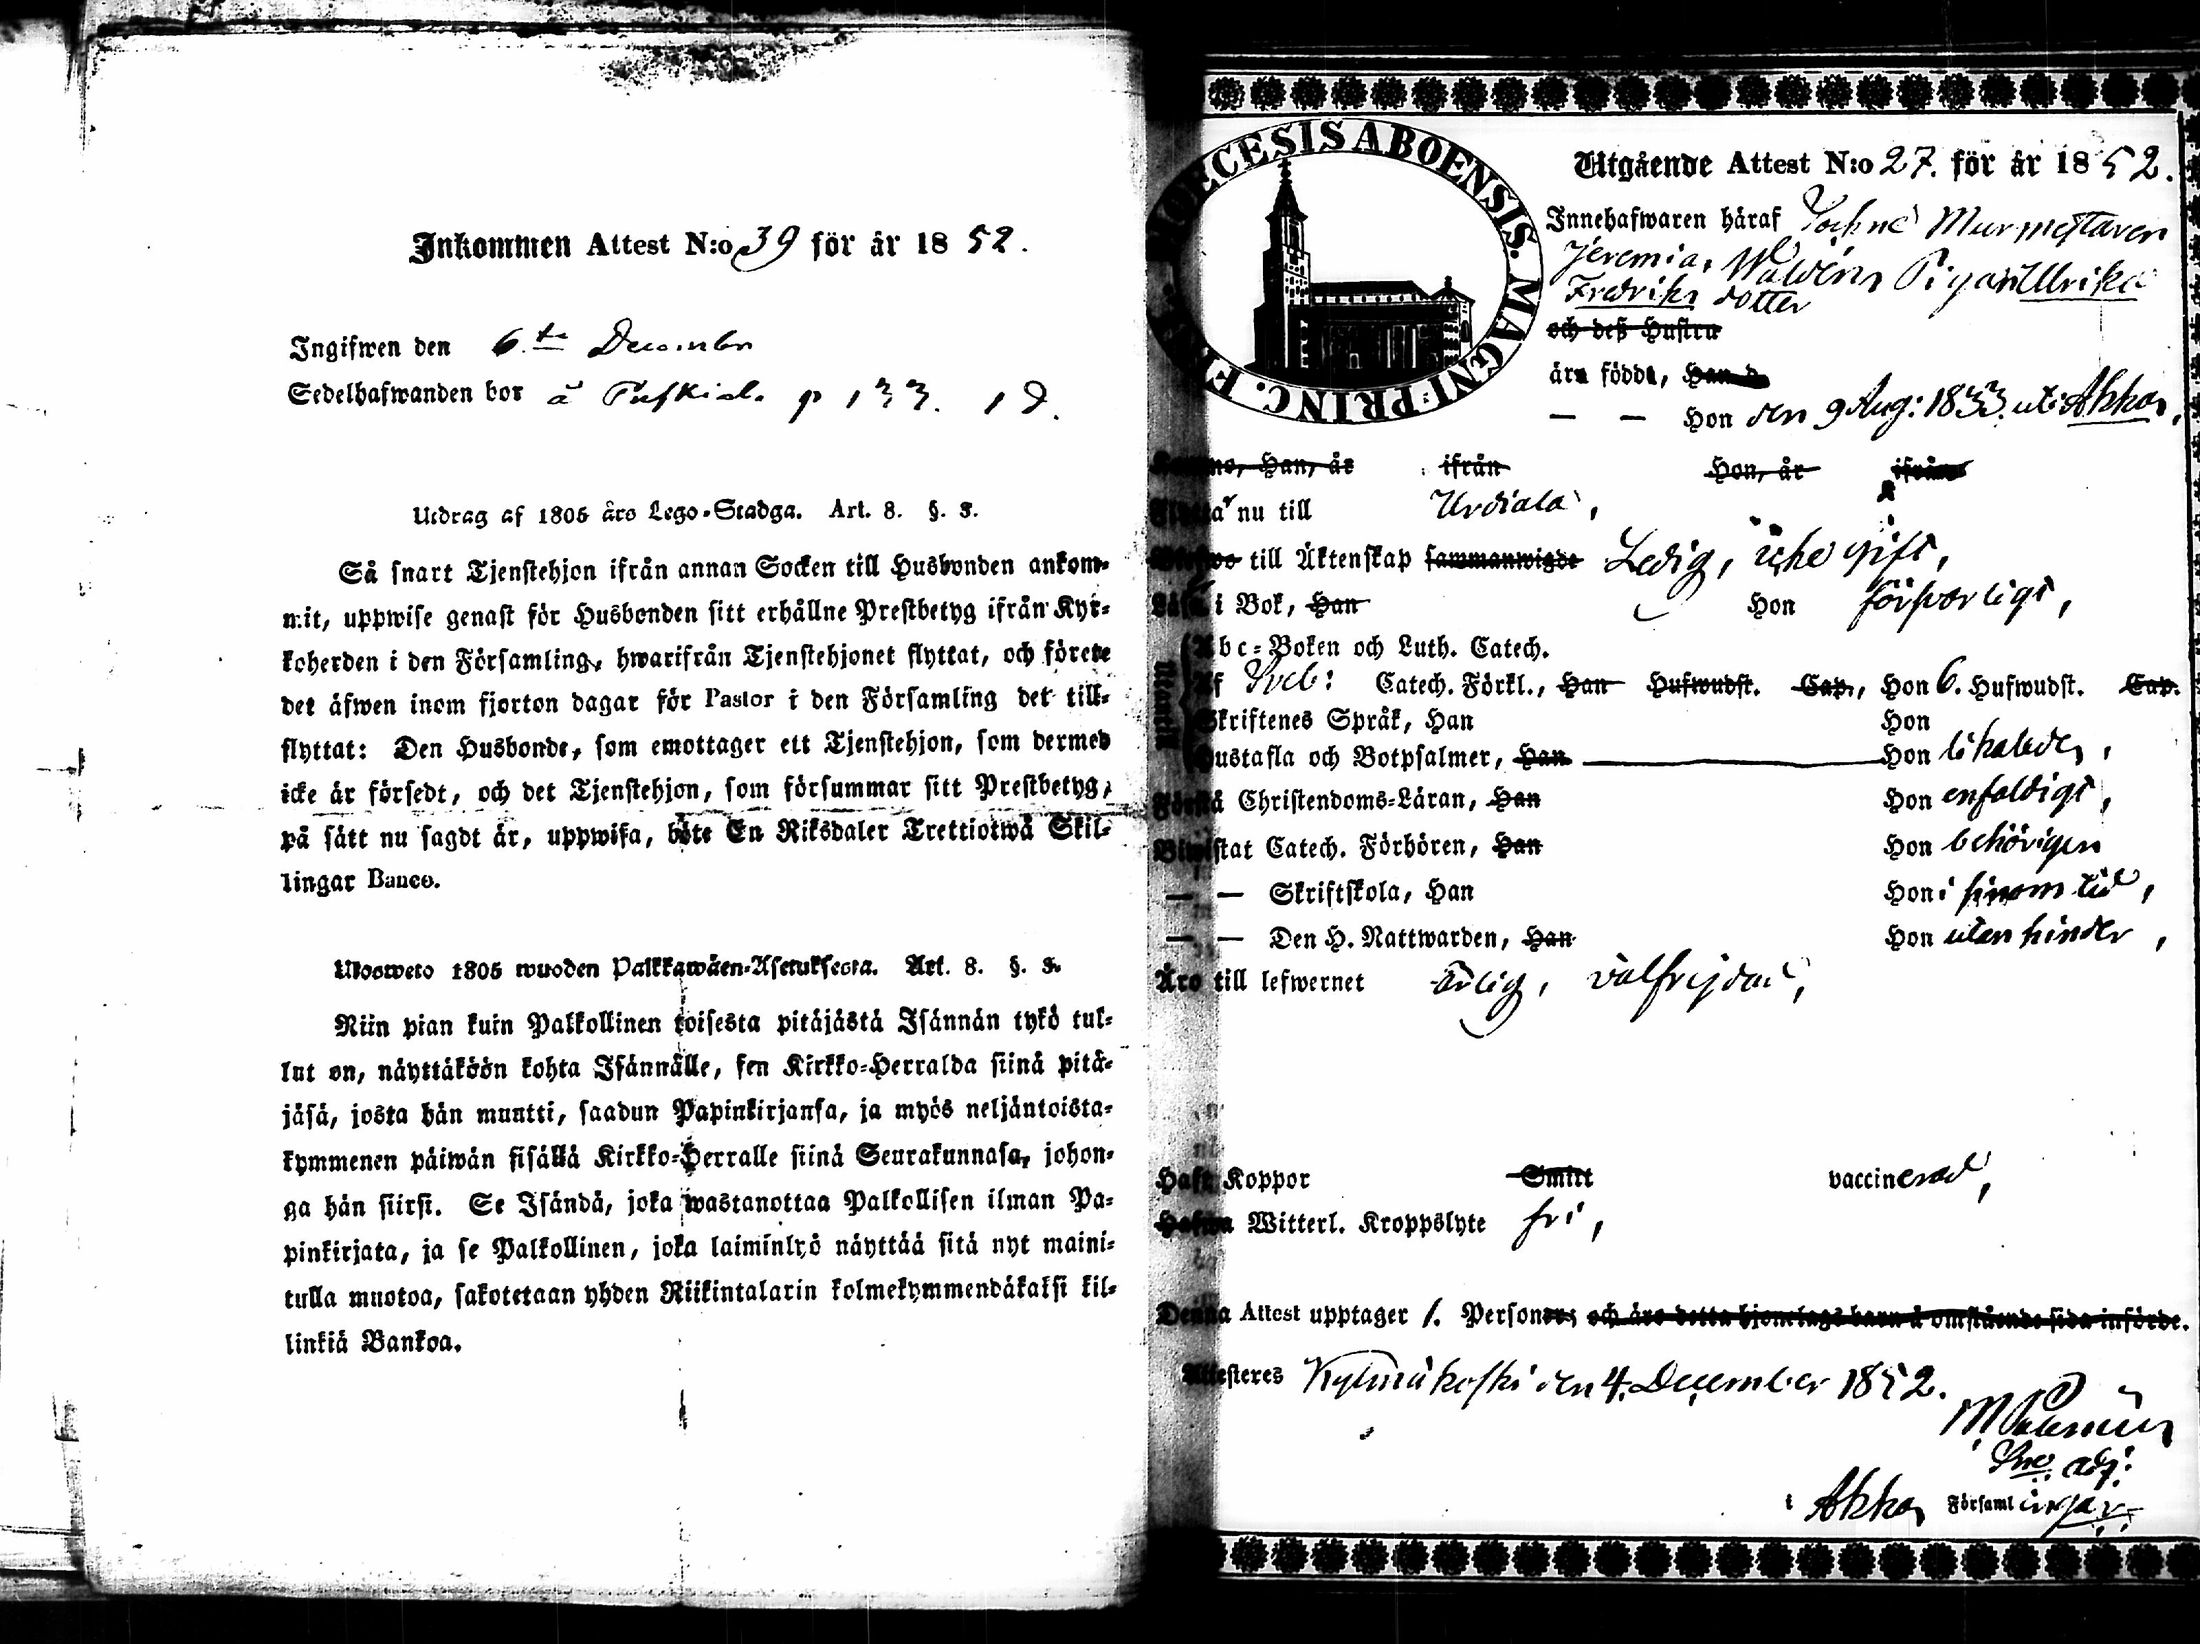 Inkommen Attest N:o 39 för år 1852.
Ingifwen den 6.te December
Sedelhafwanden bor å p 133. 18.
Utdrag af 1805 års Lego-Stadga. Art. 8. §. 3.
Så snart Tjenstehjon ifrån annan Socken till Husbonden ankom-
mit, uppwise genast för Husbonden sitt erhållne Prestbetyg ifrån Kyr-
koherden i den Församling, hwarifrån Tjenstehjonet flyttat, och förete
det äfwen inom fjorton dagar för Pastor i den Församling det till-
flyttat: Den Husbonde, som emottager ett Tjenstehjon, som dermed
icke är försedt, och det Tjenstehjon, som försummar sitt Prestbetyg,
på sätt nu sagdt är, uppwisa, böte En Riksdaler Trettiotwå Skil-
lingar Banco.
Ulosweto 1805 wuoden Palkkawäen-Asetuksesta. Art. 8. §. 3.
Niin pian kuin Palkollinen toisesta pitäjästä Isännän tykö tul-
lut on, näyttäköön kohta Isännälle, sen Kirkko-Herralda siinä pitä-
jäsä, josta hän muutti, saadun Papinkirjansa, ja myös neljäntoista-
kymmenen päiwän sisällä Kirkko-Herralle siinä Seurakunnasa, johon-
ga hän siirsi. Se Isändä, joka wastanottaa Palkollisen ilman Pa-
pinkirjata, ja se Palkollinen, joka laiminlyö näyttää sitä nyt maini-
tulla muotoa, sakotetaan yhden Riikintalarin kolmekymmendäkaksi kil-
linkiä Bankoa.
DIOECESIS ABOENSIS. MAGNI PRINC. F
Utgående Attest N:o 27. för år 1852.
Innehafwaren häraf Murmestaren
Jeremias Waldéns Pigan Ulrika
Fredriks dotter
och deß Hustru
äro födde, Han d
— — Hon den 9 Aug: 1833. uti Akkas,
Han, är ifrån Hon, är ifrån
Flytta nu till Urdiala,
till Äktenskap sammanwigde Ledig, icke gift,
Läsa i Bok, Han Hon förswarligt,
Abc-Boken och Luth. Catech.
Utantill
Af Sveb: Catech. Förkl., Han Hufwudst. Cap., Hon 6. Hufwudst. Cap.
Skriftenes Språk, Han Hon
Hustafla och Botpsalmer, Han Hon likaledes,
Förstå Christendoms-Läran, Han Hon enfaldigt,
Biwistat Catech. Förhören, Han Hon behörigen
— — Skriftskola, Han Hon i sinom tid,
— — Den H. Nattwarden, Han Hon utan hinder,
Äro till lefwernet ärlig, välfrejdad,
Haft Koppor Smitt vaccinerad,
Hafwa Witterl. Kroppslyte fri,
Denna Attest upptager 1. Personer; och äro detta hjonelags barn å omstående sida införde.
Attesteres Kylmäkoski den 4. December 1852.
adj:
i Akkas Församlingar